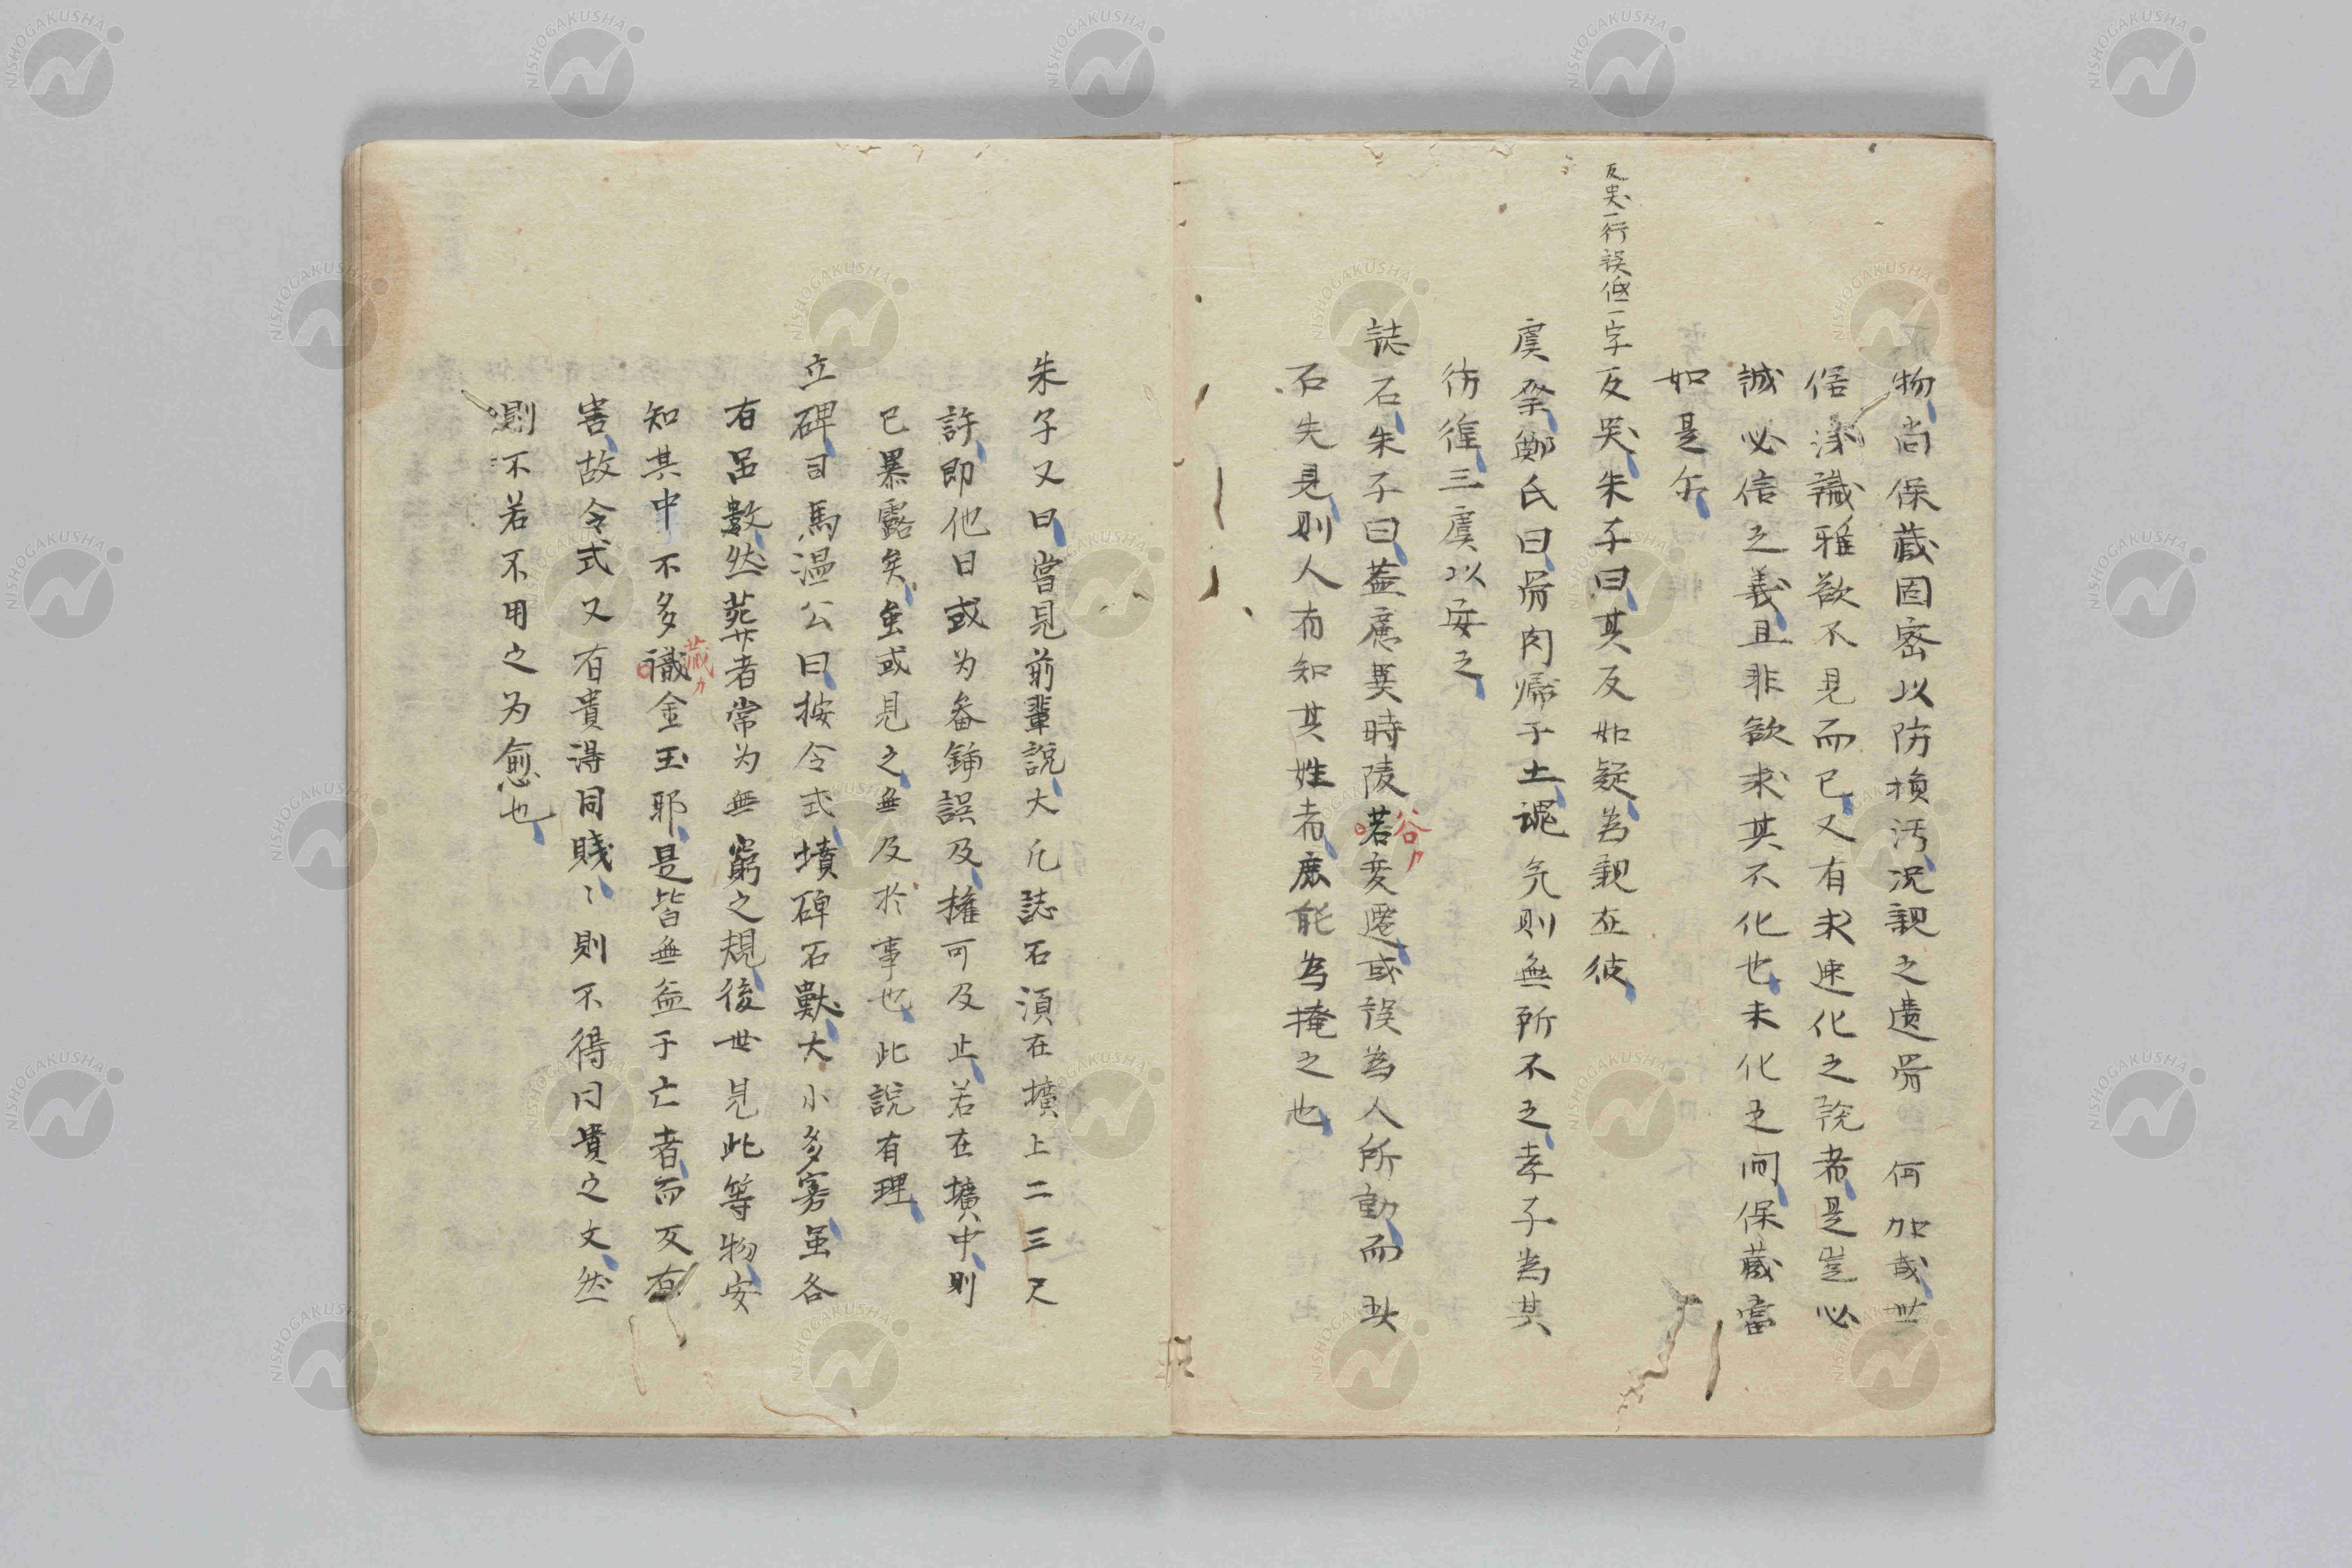 物尚保蔵固密以防損汚況親之遺骨 何加哉世
俗淺識雅欲不見而已又有求速化之説者是豈必
誠必信之義且非欲求其不化也未化之间保蔵當
如是尓
反哭一行誤低一字
反哭朱子曰其反如疑為親在彼
虞祭鄭氏曰骨肉歸于土魂氣則無所不之孝子為其
彷徨三虞以安之
誌石朱子曰蓋慮異時陵若変遷或誤為人所動而此
谷カ
石先見則人有知其姓者庶能為掩之也
朱子又曰嘗見前輩説大凢誌石湏在壙上二三尺
許即他日或为畚鍤誤及擁可及止若在壙中則
已暴露矣虽或見之無及於事也此説有理
立碑司馬温公曰按令式墳碑石獸大小多寡虽各
有品數然葬者常为無窮之規後世見此等物安
知其中不多識金玉耶是皆無益于亡者而又有
蔵カ
害故令式又有貴得同賤〻則不得同貴之文然
則不若不用之为愈也
NISHOGAKUSHA